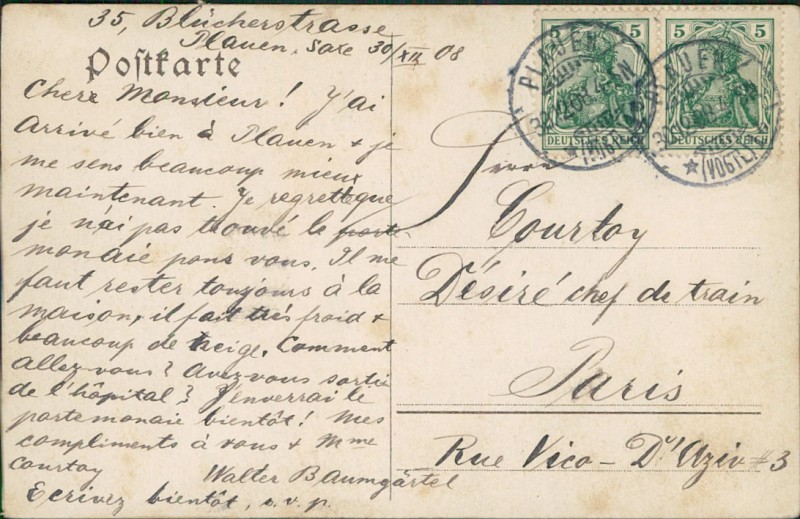 35, Blücherstrasse
Plauen, Saxe 30/XII 08
Postkarte
Cher Monsieur! J'ai
arrivé bien à Plauen + je
me sens beaucoup mieux
maintenant. Je regrette que
je n'ai pas trouvé le porte
monaie pour vous. Il me
faut rester toujours à la
maison, il fait très froid +
beaucoup de neige. Comment
allez-vous? Avez-vous sortie
de l'hôpital? J'enverrai le
portemonaie bientôt! Mes
compliments à vous + Mme
Courtoy
Walter Baumgärtel
Ecrivez bientôt, s.v.p.
5 5
DEUTSCHES REICH
5
DEUTSCHES REICH
PLAUEN
PLAUEN
(VOGTL.)
Herrn
Courtoy
Désiré chef de train
Paris
Rue Vico-D'Aziv #3